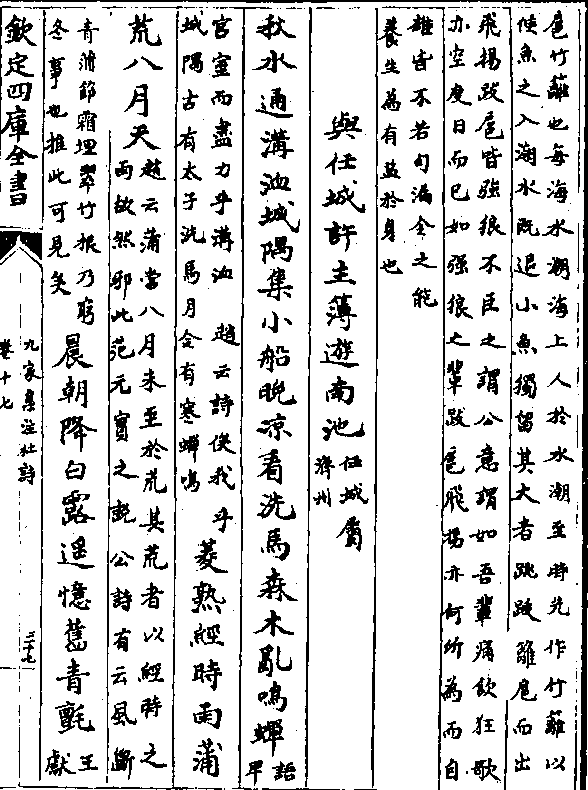 扈竹籬也每海水潮海上人於水潮至時先作竹籬以
使魚之入潮水既退小魚獨留其大者跳跋籬扈而出
飛揚跋扈皆強狼不臣之謂公意謂如吾輩痛飲狂歌
亦空度日而已如强狼之輩跋扈飛揚亦何所為而自
雄皆不若勾漏令之能
養生為有益於身也
與任城許主簿遊南池任城屬濟州
秋水通溝洫城隅集小船晚凉看洗馬森木亂鳴蟬語卑
宫室而盡力乎溝洫 趙云詩俟我乎
城隅古有太子洗馬月令有寒蟬鳴菱熟經時雨蒲
荒八月天趙云蒲當八月未至於荒其荒者以經時之
雨故然邪此范元實之説公詩有云風斷
青蒲節霜埋翠竹根乃窮
冬事也推此可見矣晨朝降白露遥憶舊青氊王獻
欽定四庫全書
九家集注杜詩
卷十七
三十七